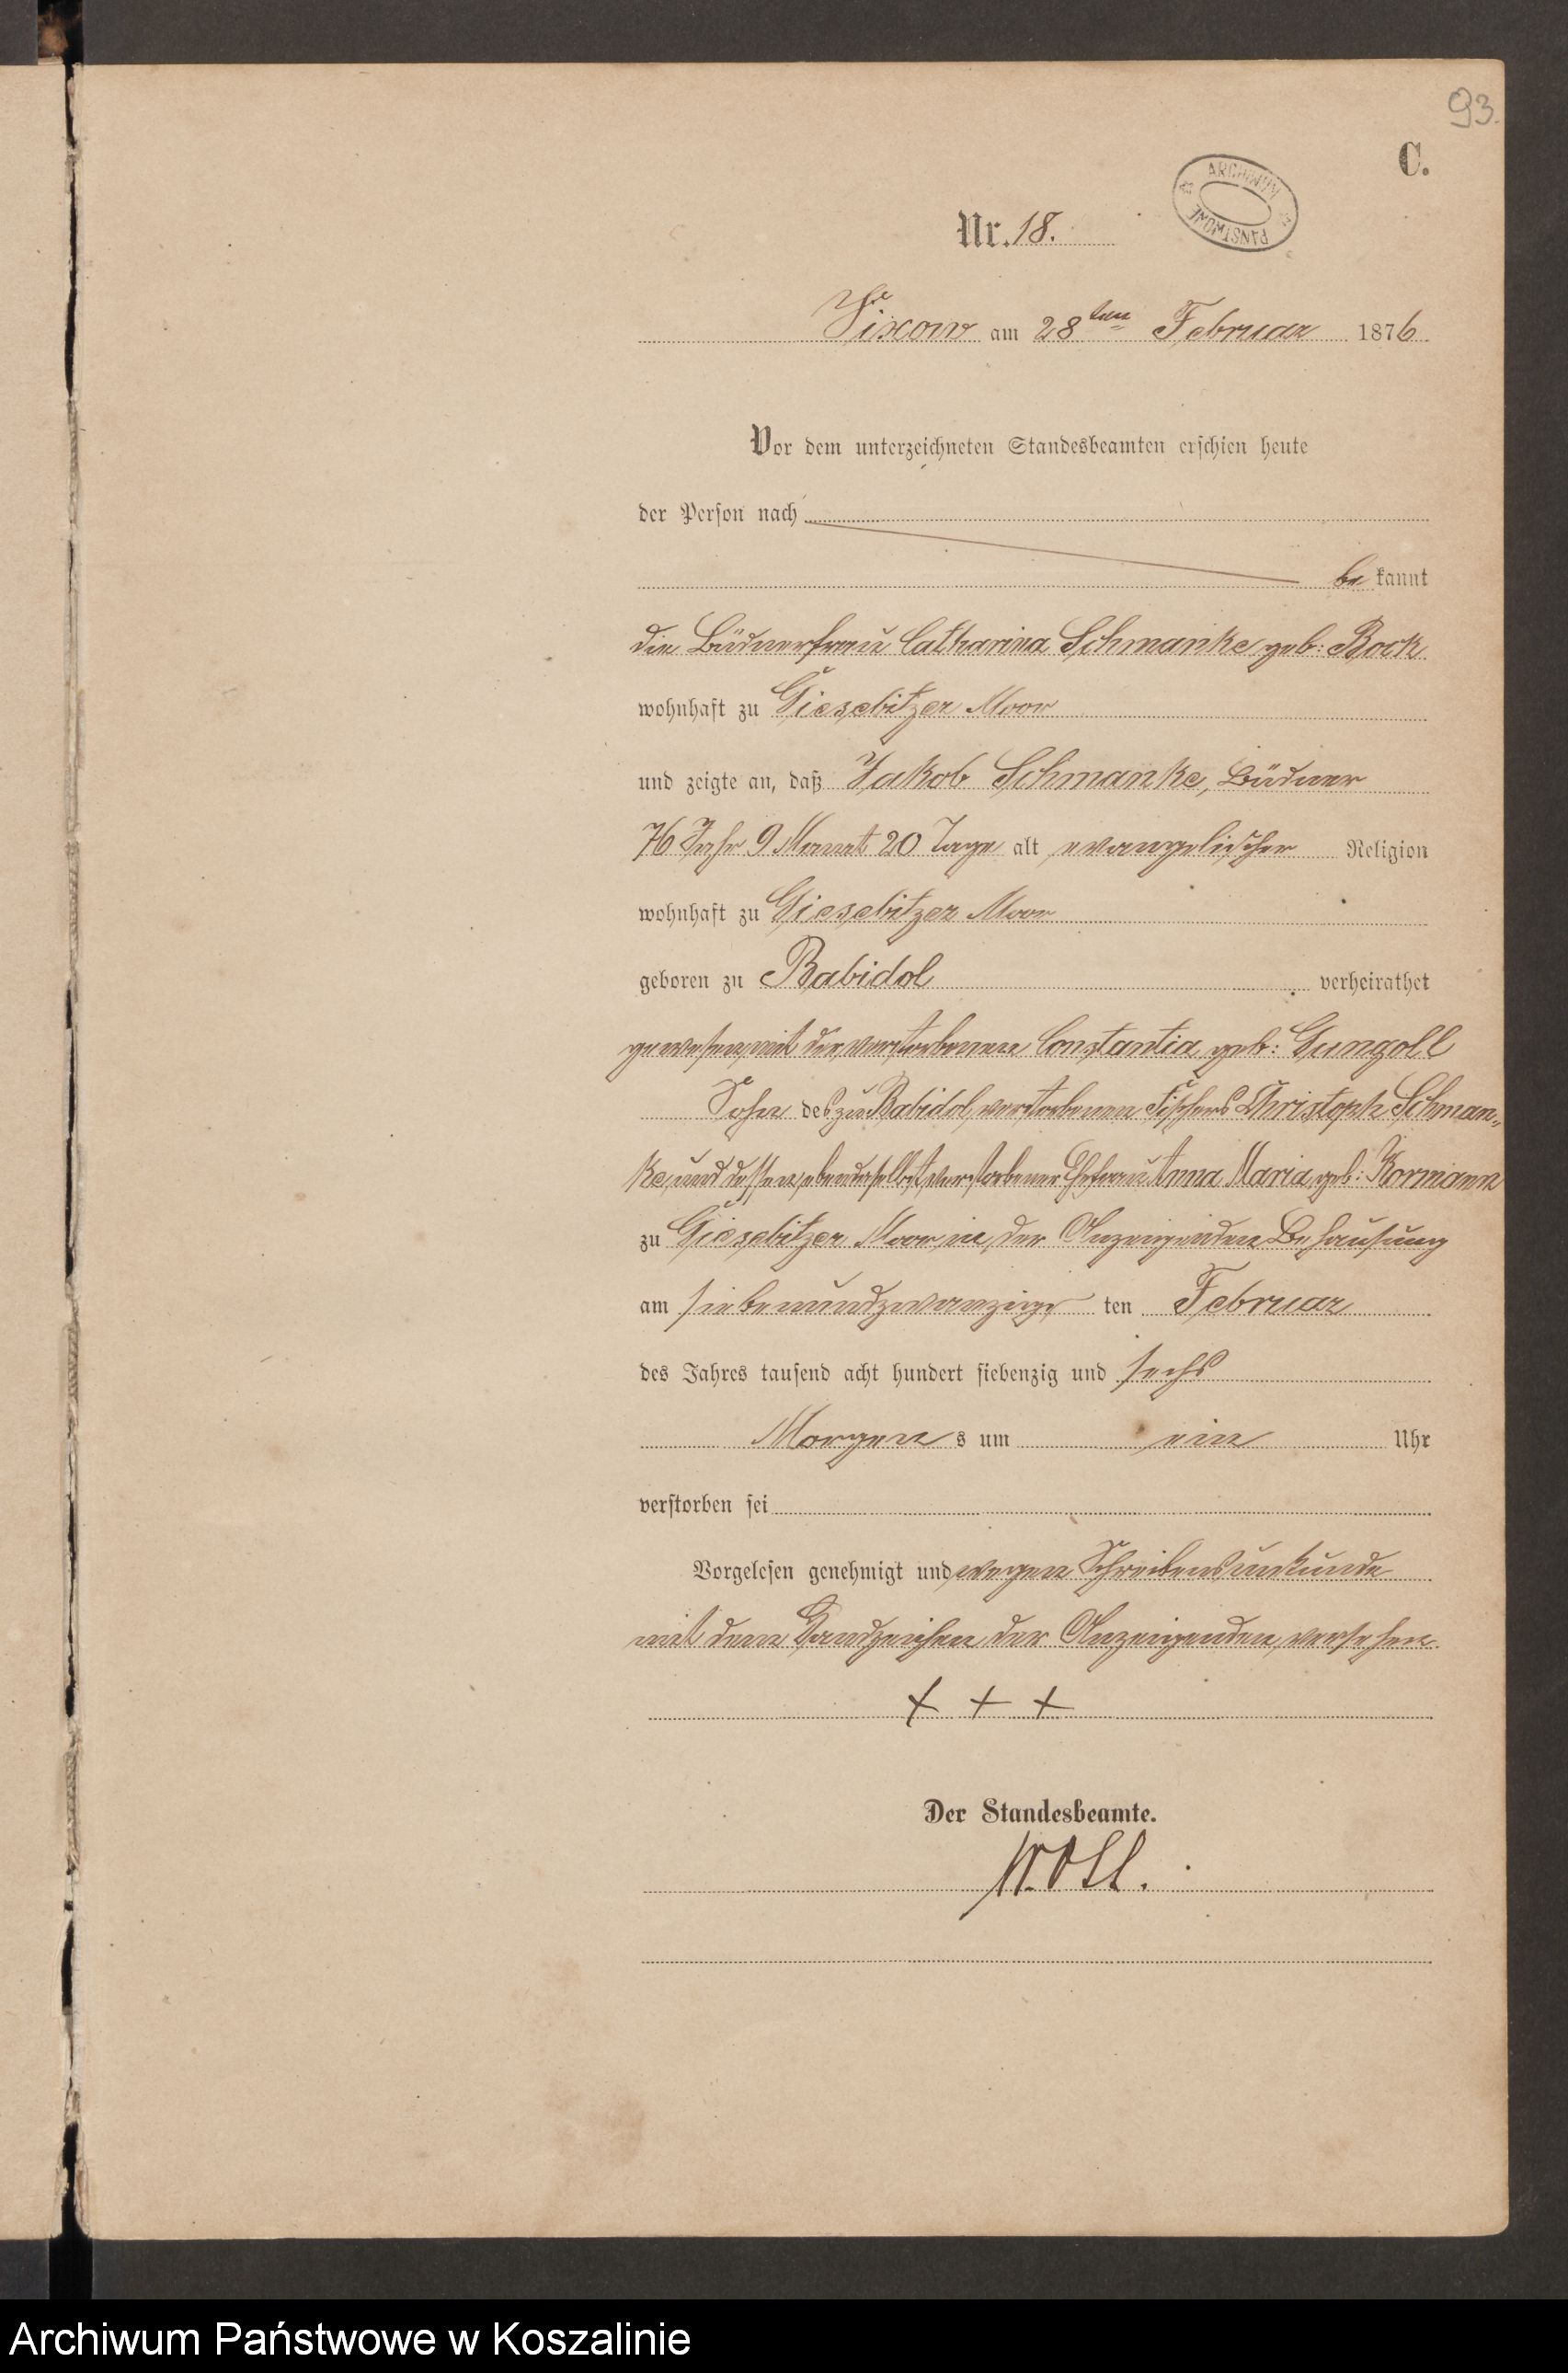 93.
C.
ARCHIWUM PAŃSTWOWE
Nr. 18.
Vixow am 28ten Februar 1876.
Vor dem unterzeichneten Standesbeamten erschien heute
der Person nach
be kannt
die Büdnerfrau Catharina Schmanke geb: Bock
wohnhaft zu Giesebitzer Moor
und zeigte an, daß Jakob Schmanke, Büdner
76 Jahr 9 Monat 20 Tage alt evangelischer Religion
wohnhaft zu Giesebitzer Moor
geboren zu Babidol verheirathet
gewesen mit der verstorbenen Constantia geb: Gungoll
Sohn des zu Babidol verstorbenen Fischers Christoph Schman-
ke und dessen ebendaselbst verstorbener Ehefrau Anna Maria geb: Kormann
zu Giesebitzer Moor in der Anzeigenden Behausung
am siebenundzwanzig ten Februar
des Jahres tausend acht hundert siebenzig und sechs
Morgen s um ein Uhr
verstorben sei
Vorgelesen genehmigt und wegen Schreibensunkunde
mit dem Handzeichen der Anzeigenden versehen.
+ + +
Der Standesbeamte.
Woll.
Archiwum Państwowe w Koszalinie